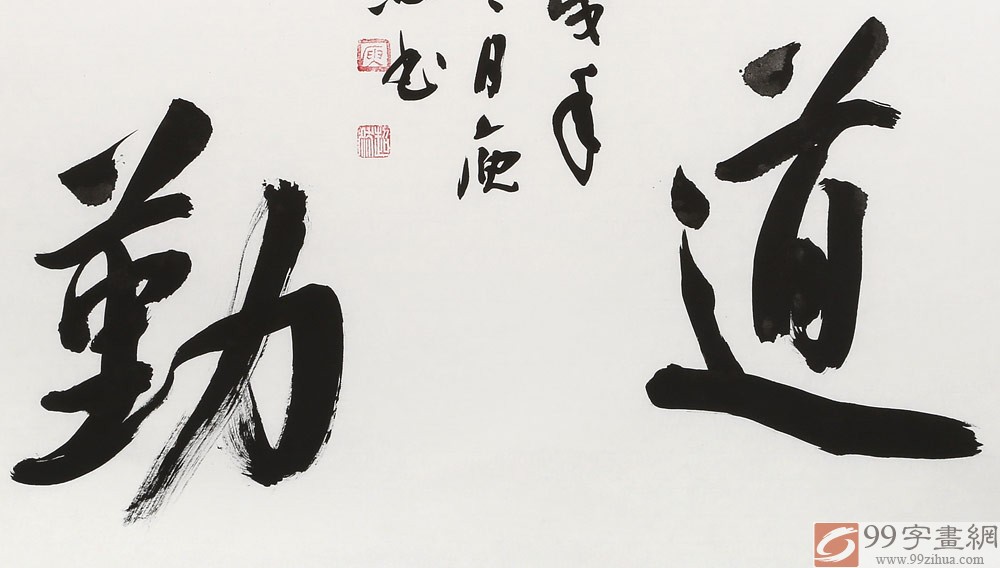 道
年
月庾
书
勤
99字畫網
www.99zihua.com